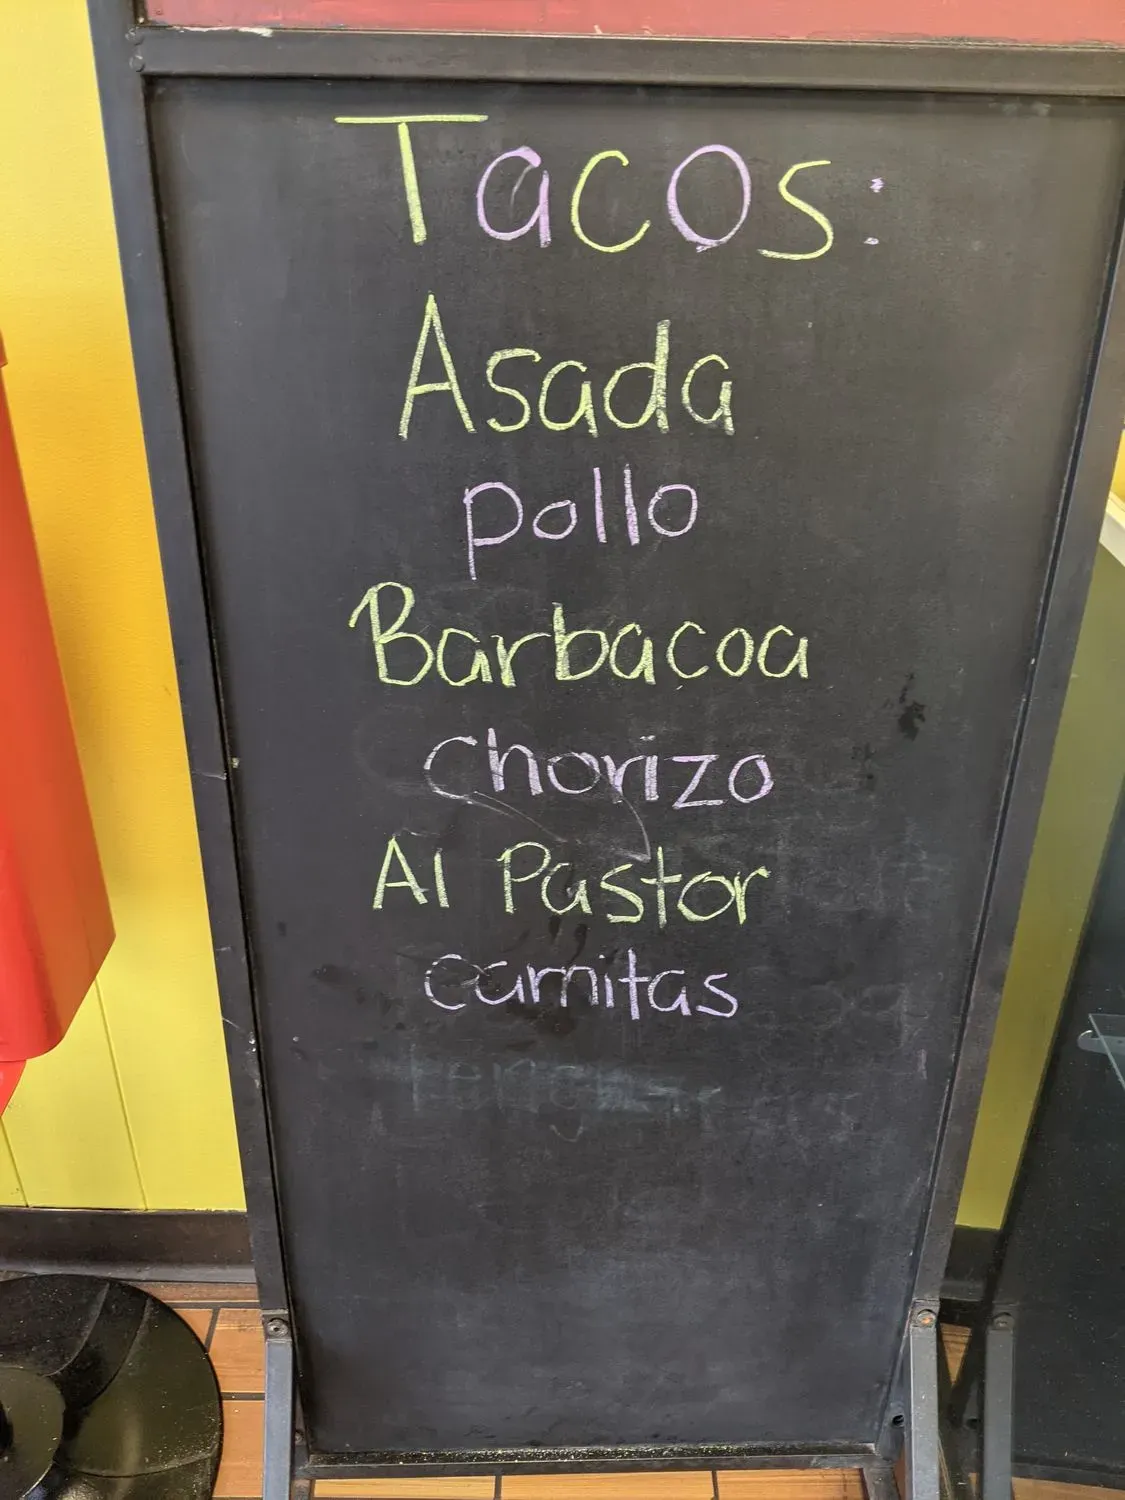 Tacos:
Asada
pollo
Barbacoa
chorizo
Al Pastor
carnitas